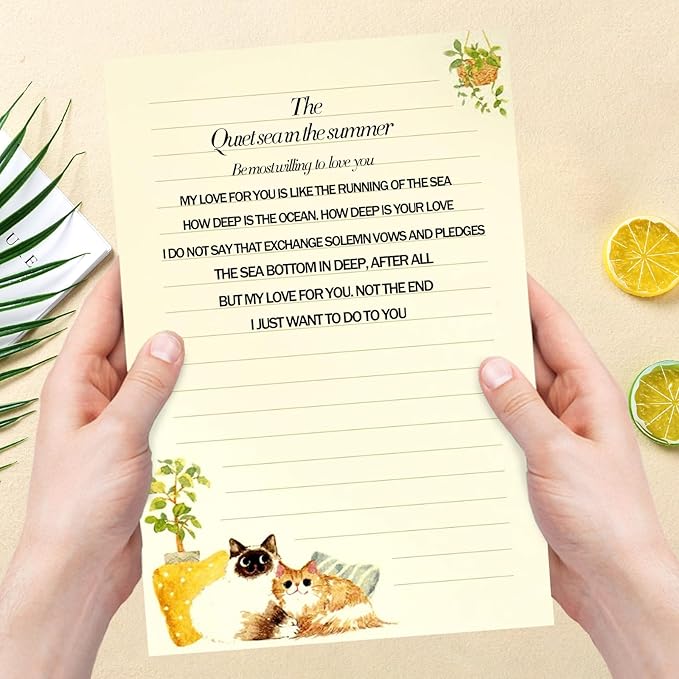 The
Quiet sea in the summer
Be most willing to love you
MY LOVE FOR YOU IS LIKE THE RUNNING OF THE SEA
HOW DEEP IS THE OCEAN. HOW DEEP IS YOUR LOVE
I DO NOT SAY THAT EXCHANGE SOLEMN VOWS AND PLEDGES
THE SEA BOTTOM IN DEEP, AFTER ALL
BUT MY LOVE FOR YOU. NOT THE END
I JUST WANT TO DO TO YOU